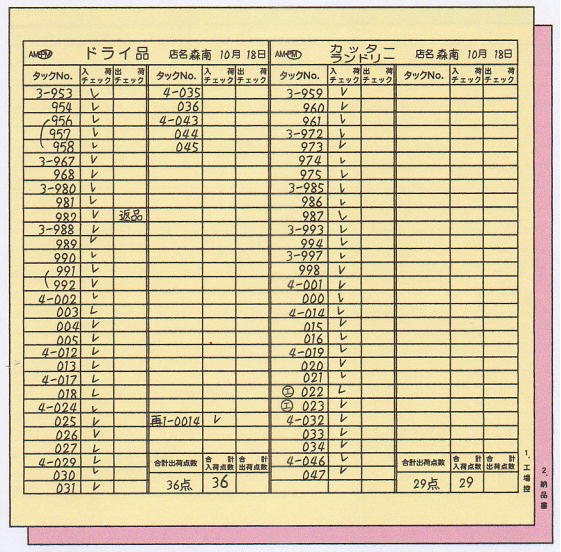 AM・PM ドライ品 店名 森南 10月 18日
タックNo. 入荷チェック 出荷チェック タックNo. 入荷チェック 出荷チェック
3-953 ✓ 4-035 ✓
954 ✓ 036 ✓
956 ✓ 4-043 ✓
957 ✓ 044 ✓
958 ✓ 045 ✓
3-967 ✓
968 ✓
3-980 ✓
981 ✓
982 ✓ 返品
3-988 ✓
989 ✓
990 ✓
991 ✓
992 ✓
4-002 ✓
003 ✓
004 ✓
005 ✓
4-012 ✓
013 ✓
4-017 ✓
018 ✓
4-024 ✓
025 ✓ 再1-0014 ✓
026 ✓
027 ✓
4-029 ✓
030 ✓
031 ✓
合計出荷点数 合計入荷点数 合計出荷点数
36点 36
AM・PM カッター
ランドリー 店名 森南 10月 18日
タックNo. 入荷チェック 出荷チェック タックNo. 入荷チェック 出荷チェック
3-959 ✓
960 ✓
961 ✓
3-972 ✓
973 ✓
974 ✓
975 ✓
3-985 ✓
986 ✓
987 ✓
3-993 ✓
994 ✓
3-997 ✓
998 ✓
4-001 ✓
000 ✓
4-014 ✓
015 ✓
016 ✓
4-019 ✓
020 ✓
021 ✓
㋓ 022 ✓
㋓ 023 ✓
4-032 ✓
033 ✓
034 ✓
4-046 ✓
047 ✓
合計出荷点数 合計入荷点数 合計出荷点数
29点 29
1．工場控
2．納品書